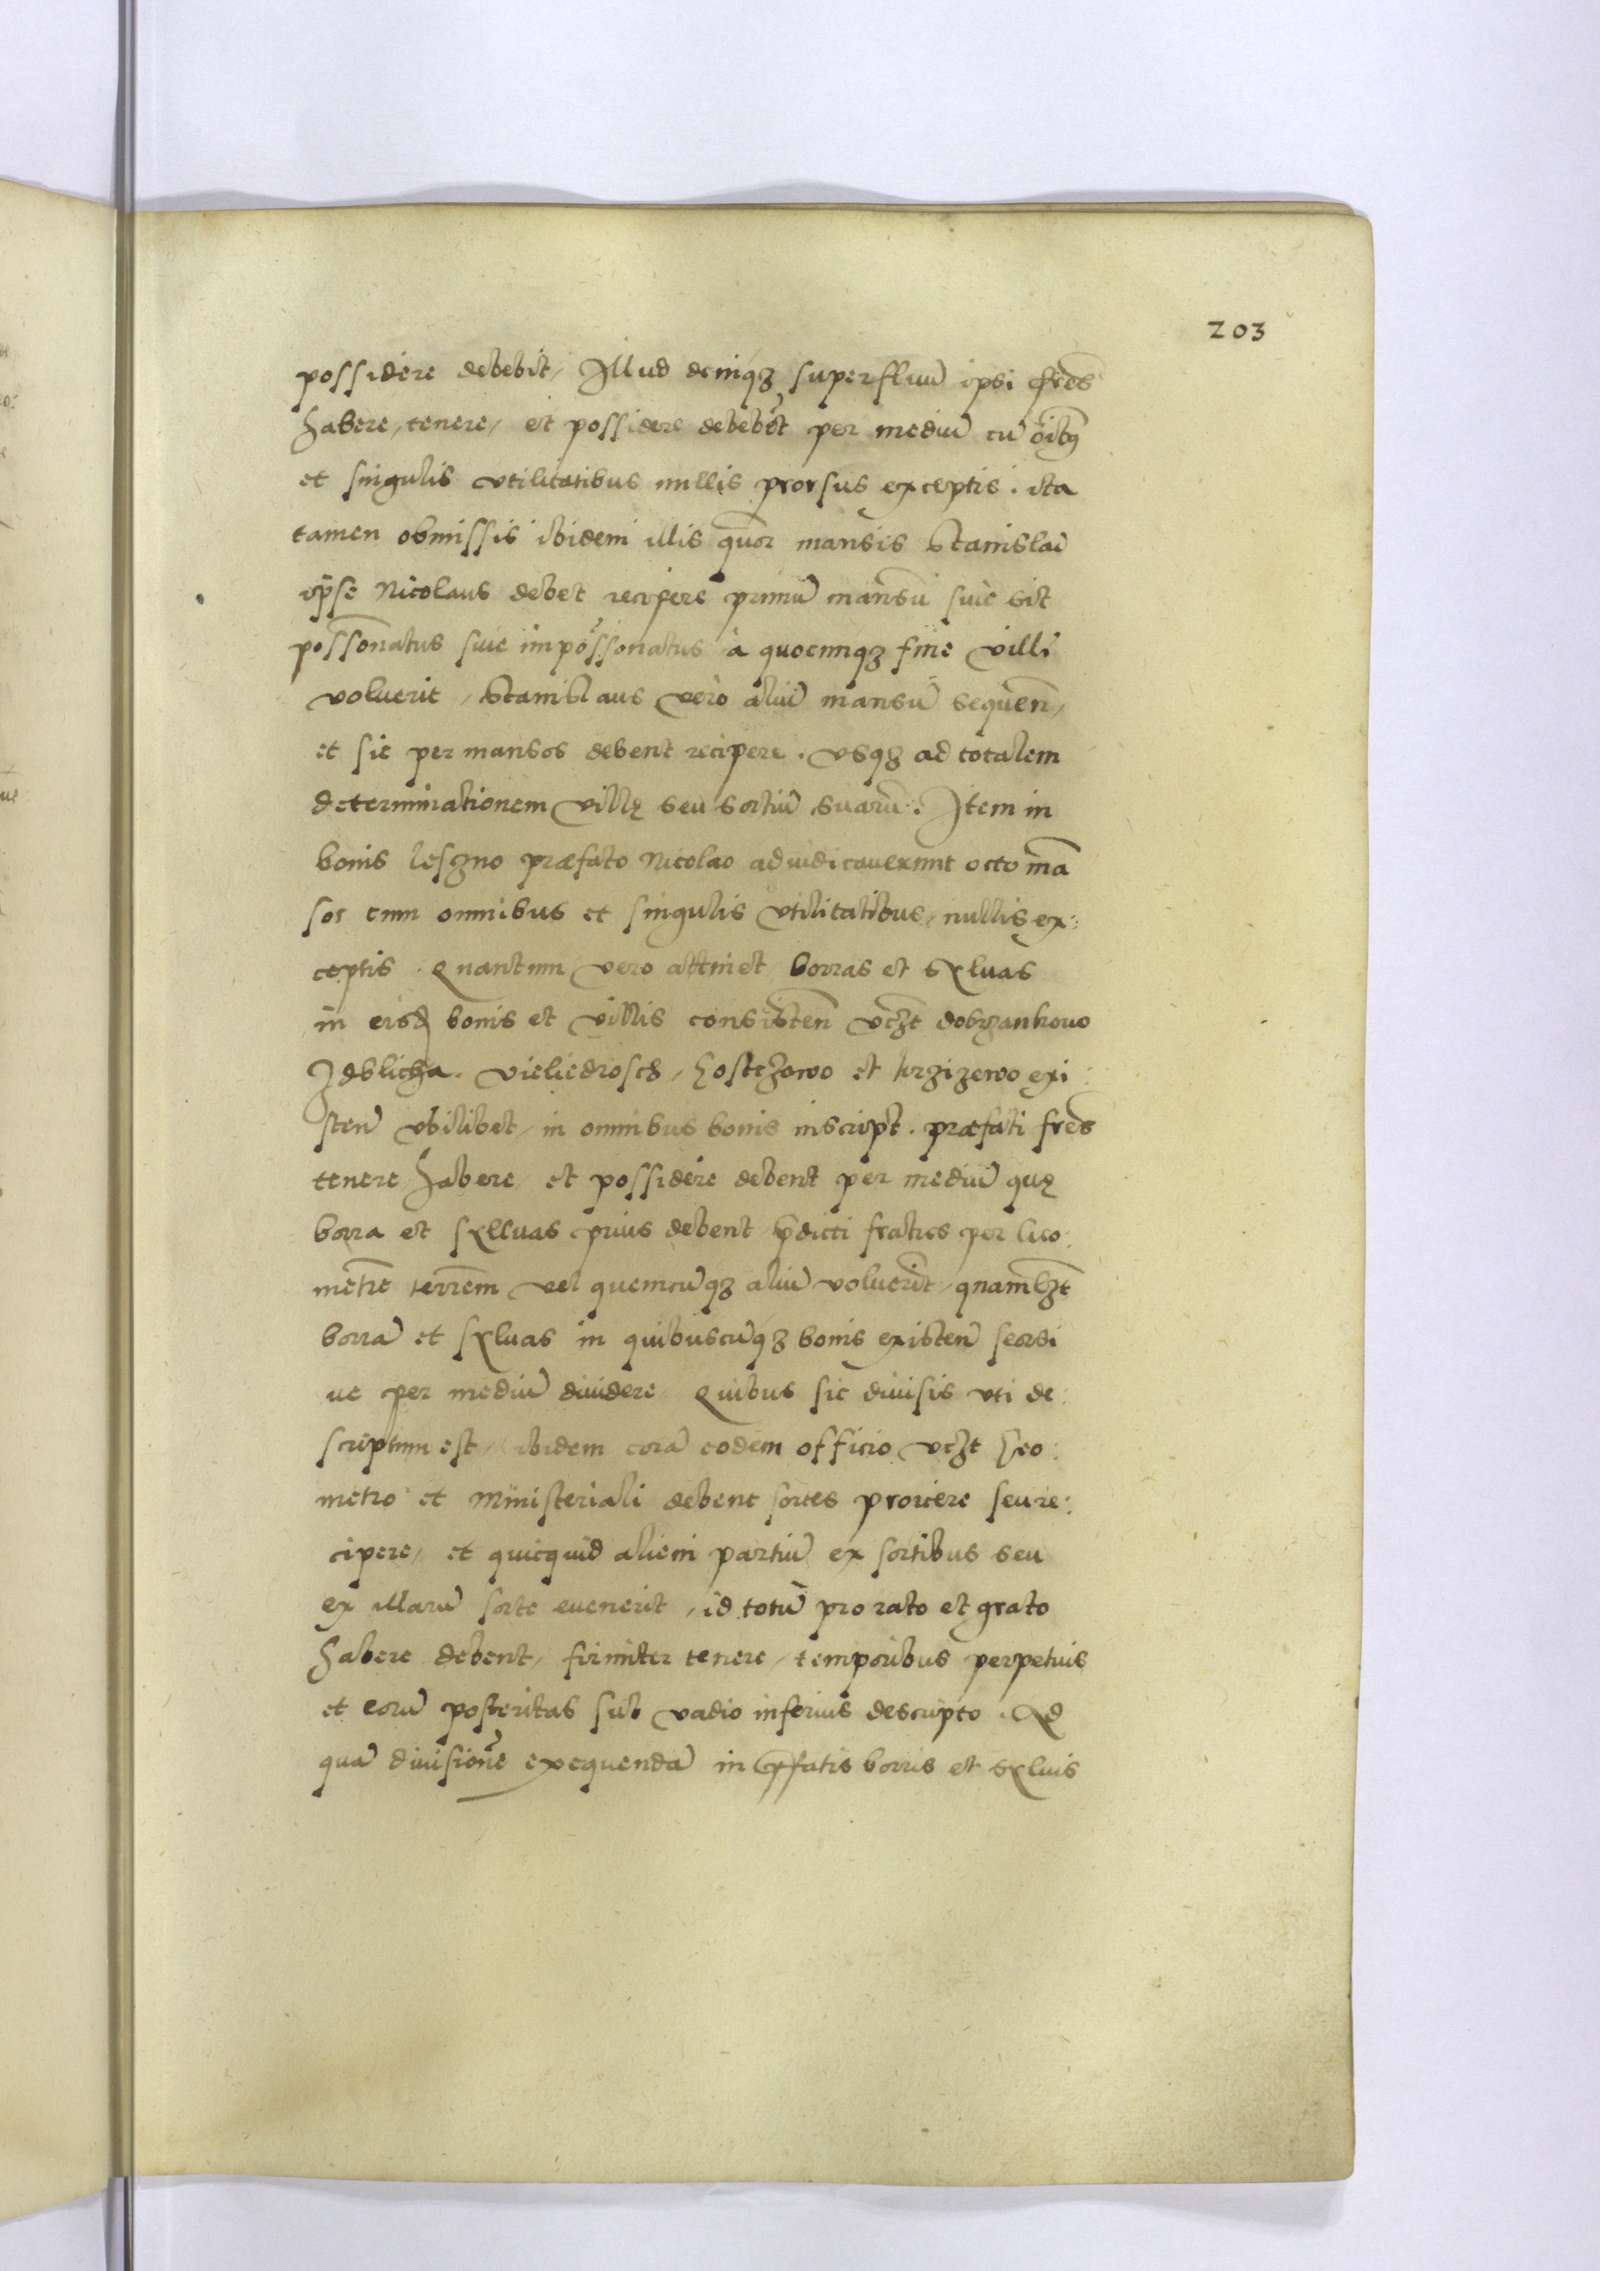 203
possidere debebit, Illud deniqꝫ superfluū ipsi fres̄
habere, tenere, et possidere debebūt per mediū cū oībꝫ
et singulis vtilitatibus nullis prorsus exceptis. ita
tamen obmissis ibidem illis quor̄ mansis Stanislai
ip̄se Nicolaus debet recipere primū mansū siue sit
poss̄onatus siue imposs̄ionatus à quocunqꝫ fine villę
voluerit, Stanislaus vero aliū mansū sequen̄,
et sic per mansos debent recipere. vsqꝫ ad totalem
determinationem villę seu sortiū suarū. Item in
bonis leszno præfato Nicolao adiudicauerunt octo mā
sos cum omnibus et singulis vtilitatibus, nullis ex:
ceptis. Quantum vero attinet, borras et syluas
in eisd bonis et villis consisten̄ vczt dobrzankouo
Idblicza. vieliedrosch, hostczowo et krzizewo exi:
sten̄ vbilibet, in omnibus bonis inscript. præfati fres̄
tenere habere, et possidere debent per mediū quę
borra et sylluas prius debent p̄dicti fratres per Geo:
metre terrēm vel quemcūqꝫ aliū voluerit, quamlꝫt
borrā et syluas in quibuscūqꝫ bonis existen̄ seorsi
ue per mediū diuidere. Quibus sic diuisis vti de:
scriptum est, ibidem corā eodem officio vczt Geo:
metro et Ministeriali debent sortes proicere seu re:
cipere, et quicquid alicui partiū ex sortibus seu
ex illarū sorte euenerit, id totū pro rato et grato
habere debent, firmiter tenere, temporibus perpetuis
et eorū posteritas sub vadio inferius descripto. Ad
quā diuisionē exequendā in p̄fatis borris et syluis